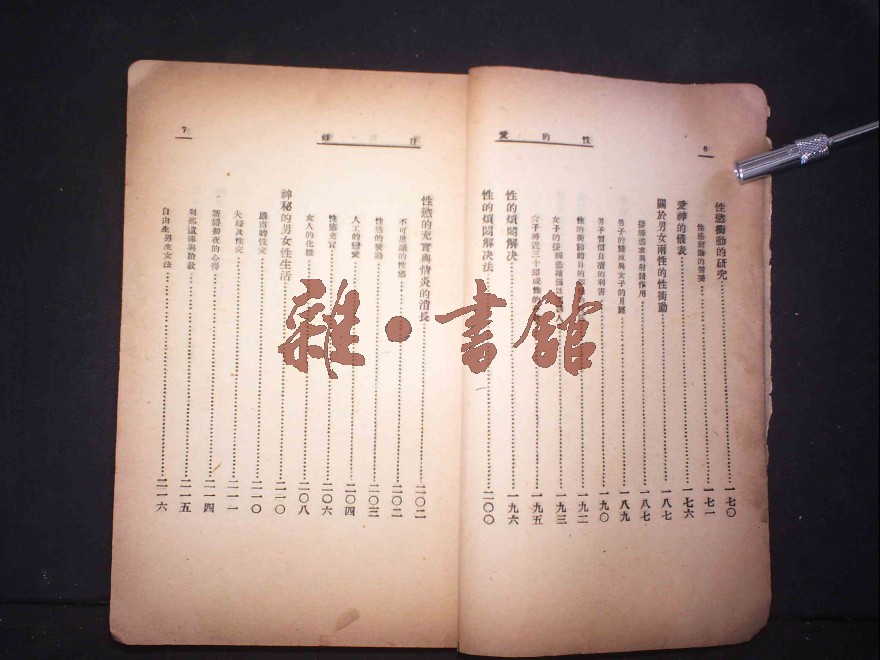 性的愛
6
性慾衝動的研究 一七〇
性慾衝動的需要 一七一
愛神的儀表 一七六
關於男女兩性的性衝動 一八七
接觸慾求與射精作用 一八七
男子的精液與女子的月經 一八九
男子習慣自瀆的利害 一九〇
性的衝動的目的 一九二
女子的接觸慾 一九三
女子將近三十 一九五
性的煩悶解決 一九六
性的煩悶解決法 二〇〇
7
性慾的充實與情炎的消長 二〇二
不可思議的性慾 二〇二
性慾的發動 二〇三
人工的戀愛 二〇四
性慾充實 二〇六
女人的化粧 二〇八
神秘的男女性生活 二一〇
過度的性交 二一〇
夫婦及性交 二一一
新婚初夜的心得 二一四
遺傳與胎教 二一五
自由生男生女法 二一六
雜·書館